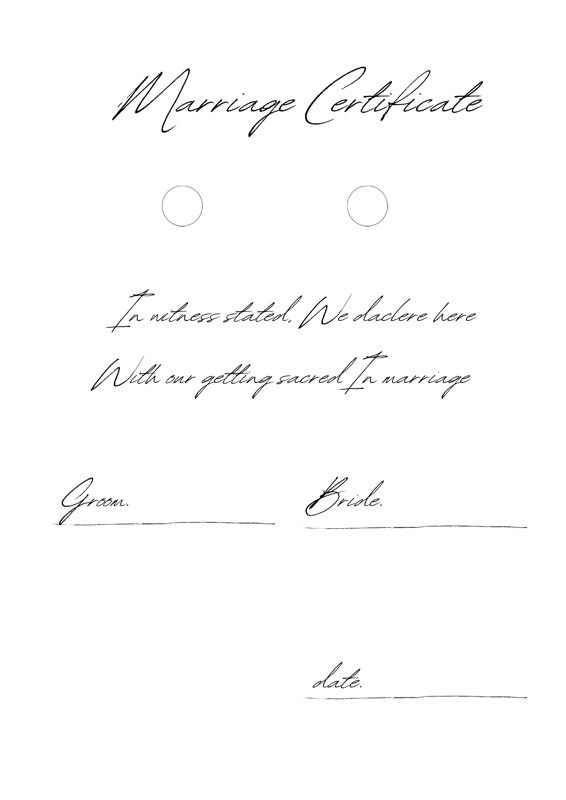 Marriage Certificate
In witness stated, We daclere here
With our getting sacred In marriage
Groom.
Bride.
date.